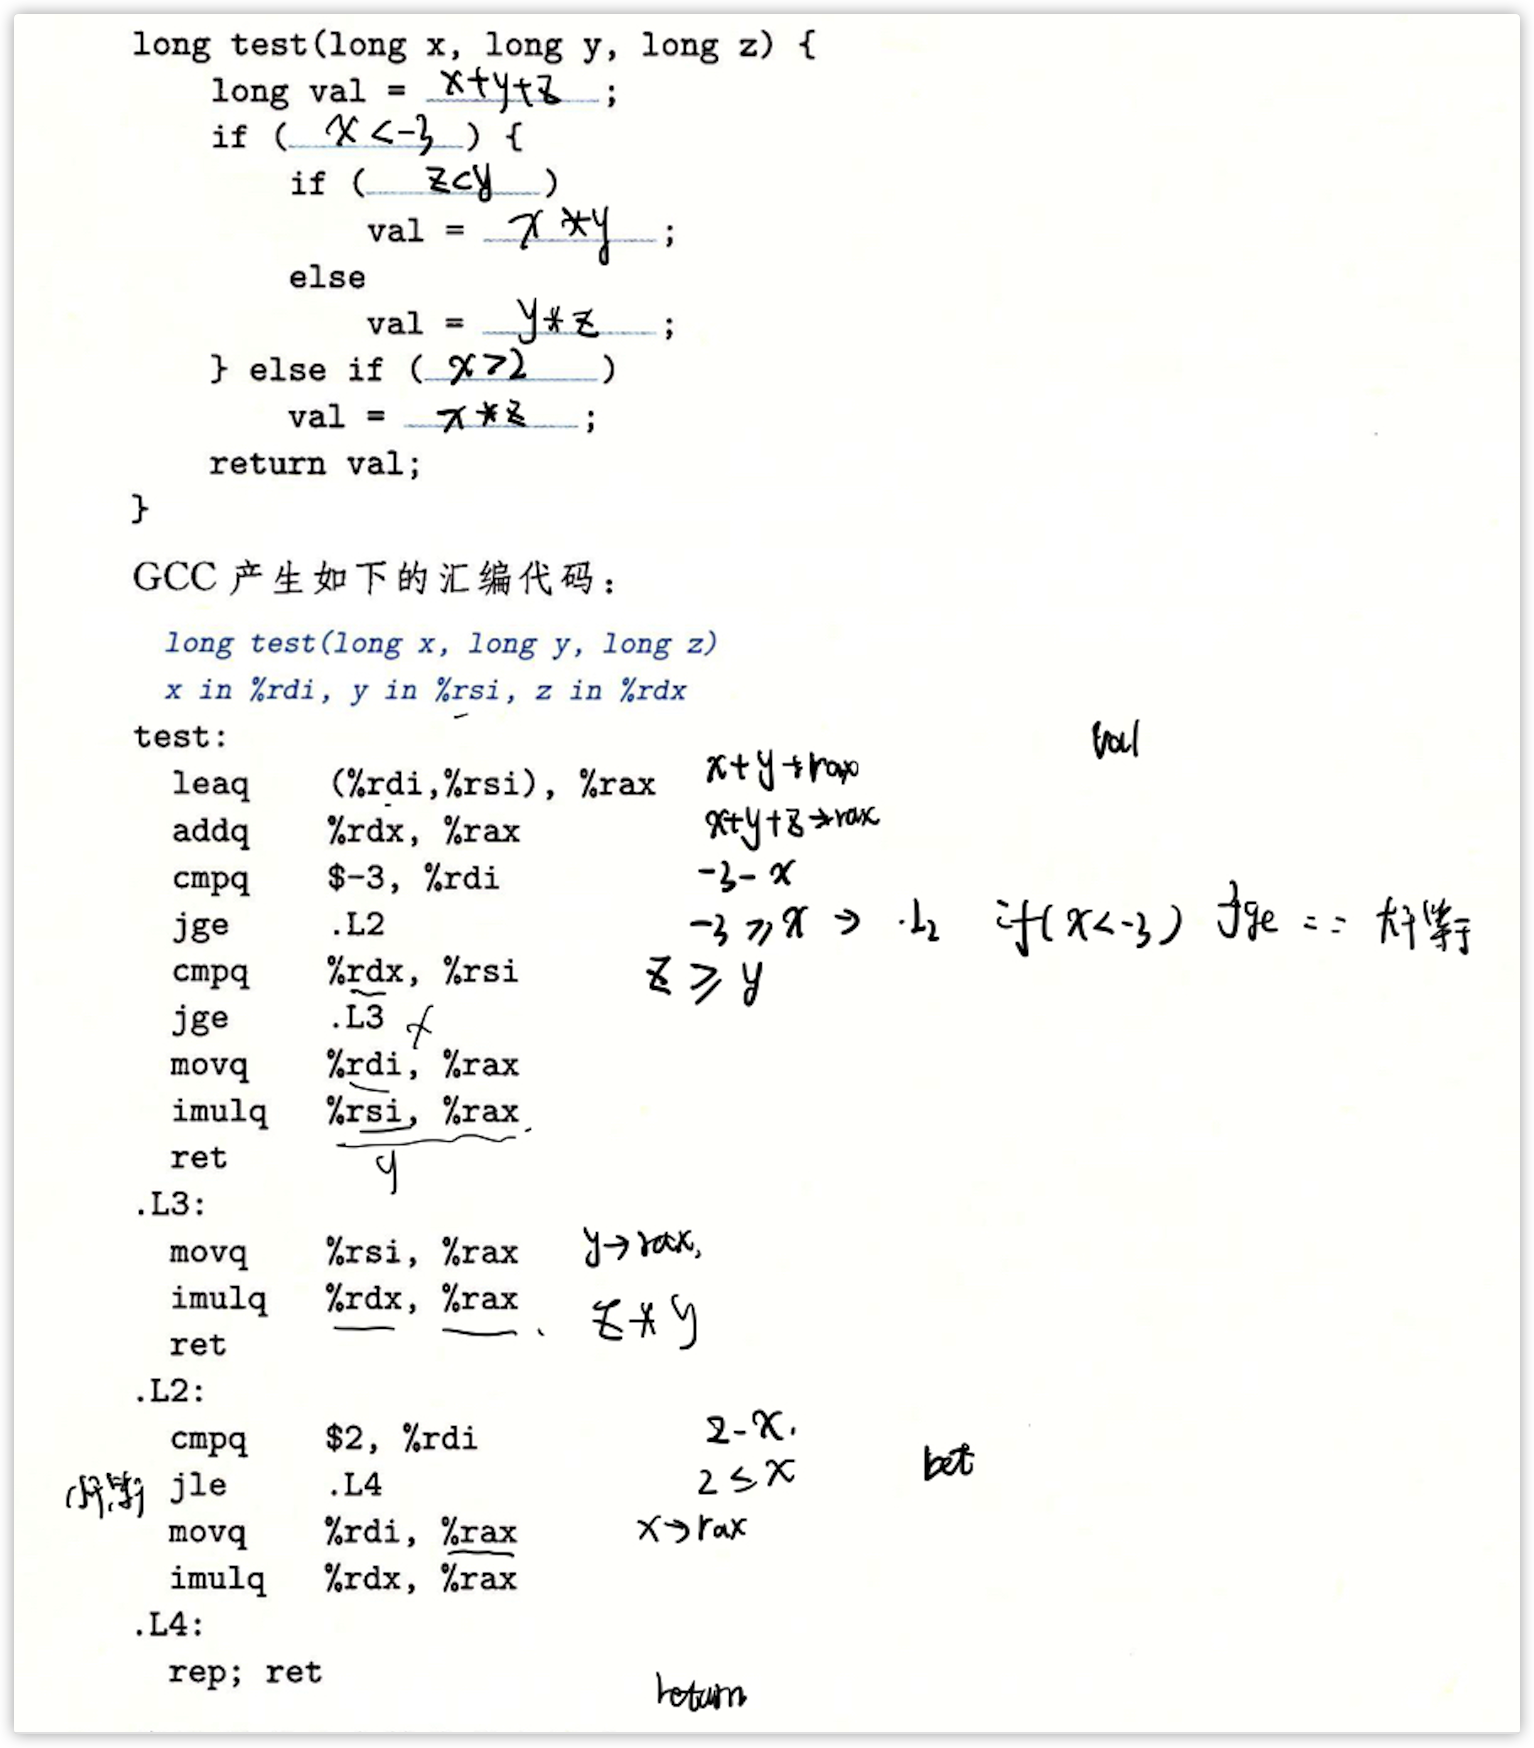 long test(long x, long y, long z) {
long val = x+y+z ;
if ( x<-3 ) {
if ( z<y )
val = x*y ;
else
val = y*z ;
} else if ( x>2 )
val = x*z ;
return val;
}
GCC 产生如下的汇编代码：
long test(long x, long y, long z)
x in %rdi, y in %rsi, z in %rdx
test: val
leaq (%rdi,%rsi), %rax x+y→rax
addq %rdx, %rax x+y+z→rax
cmpq $-3, %rdi -3-x
jge .L2 -3≥x → .L2 if(x<-3) jge == 大于等于
cmpq %rdx, %rsi z≥y
jge .L3
movq %rdi, %rax
imulq %rsi, %rax
ret y
.L3:
movq %rsi, %rax y→rax,
imulq %rdx, %rax z*y
ret
.L2:
cmpq $2, %rdi 2-x.
小于等于 jle .L4 2≤x
movq %rdi, %rax x→rax
imulq %rdx, %rax
.L4:
rep; ret return